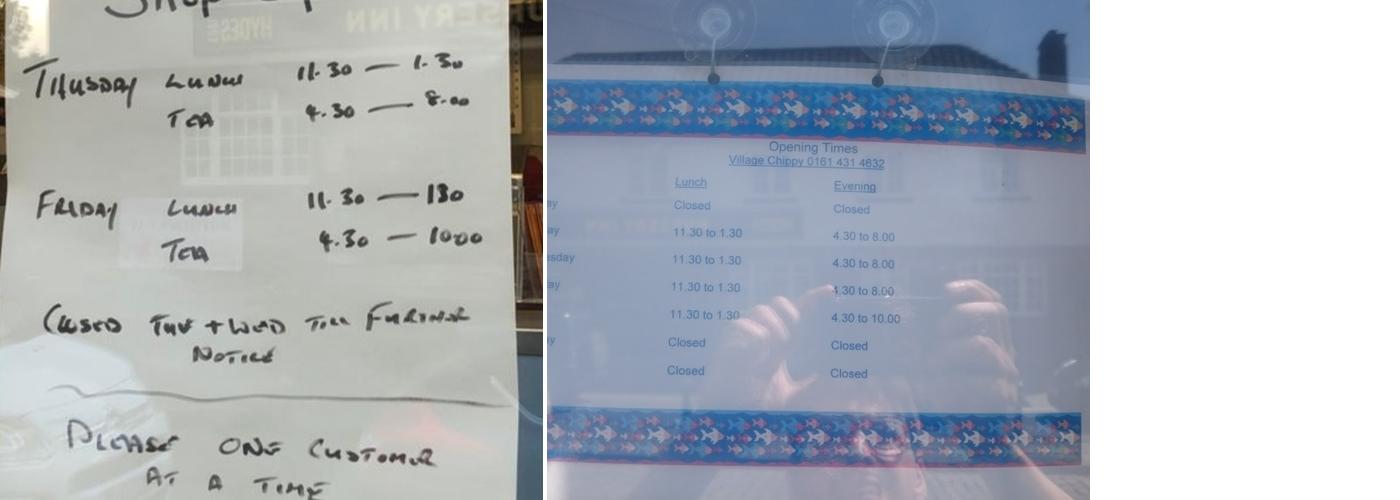 Shop
THUSDAY LUNCH 11.30 — 1.30
TEA 4.30 — 8.00
FRIDAY LUNCH 11.30 — 130
TEA 4.30 — 1000
CLOSED TUE + WED TILL FURTHER
NOTICE
PLEASE ONE CUSTOMER
AT A TIME
Opening Times
Village Chippy 0161 431 4632
Lunch Evening
Closed Closed
ay 11.30 to 1.30 4.30 to 8.00
sday 11.30 to 1.30 4.30 to 8.00
ay 11.30 to 1.30 4.30 to 8.00
11.30 to 1.30 4.30 to 10.00
Closed Closed
Closed Closed